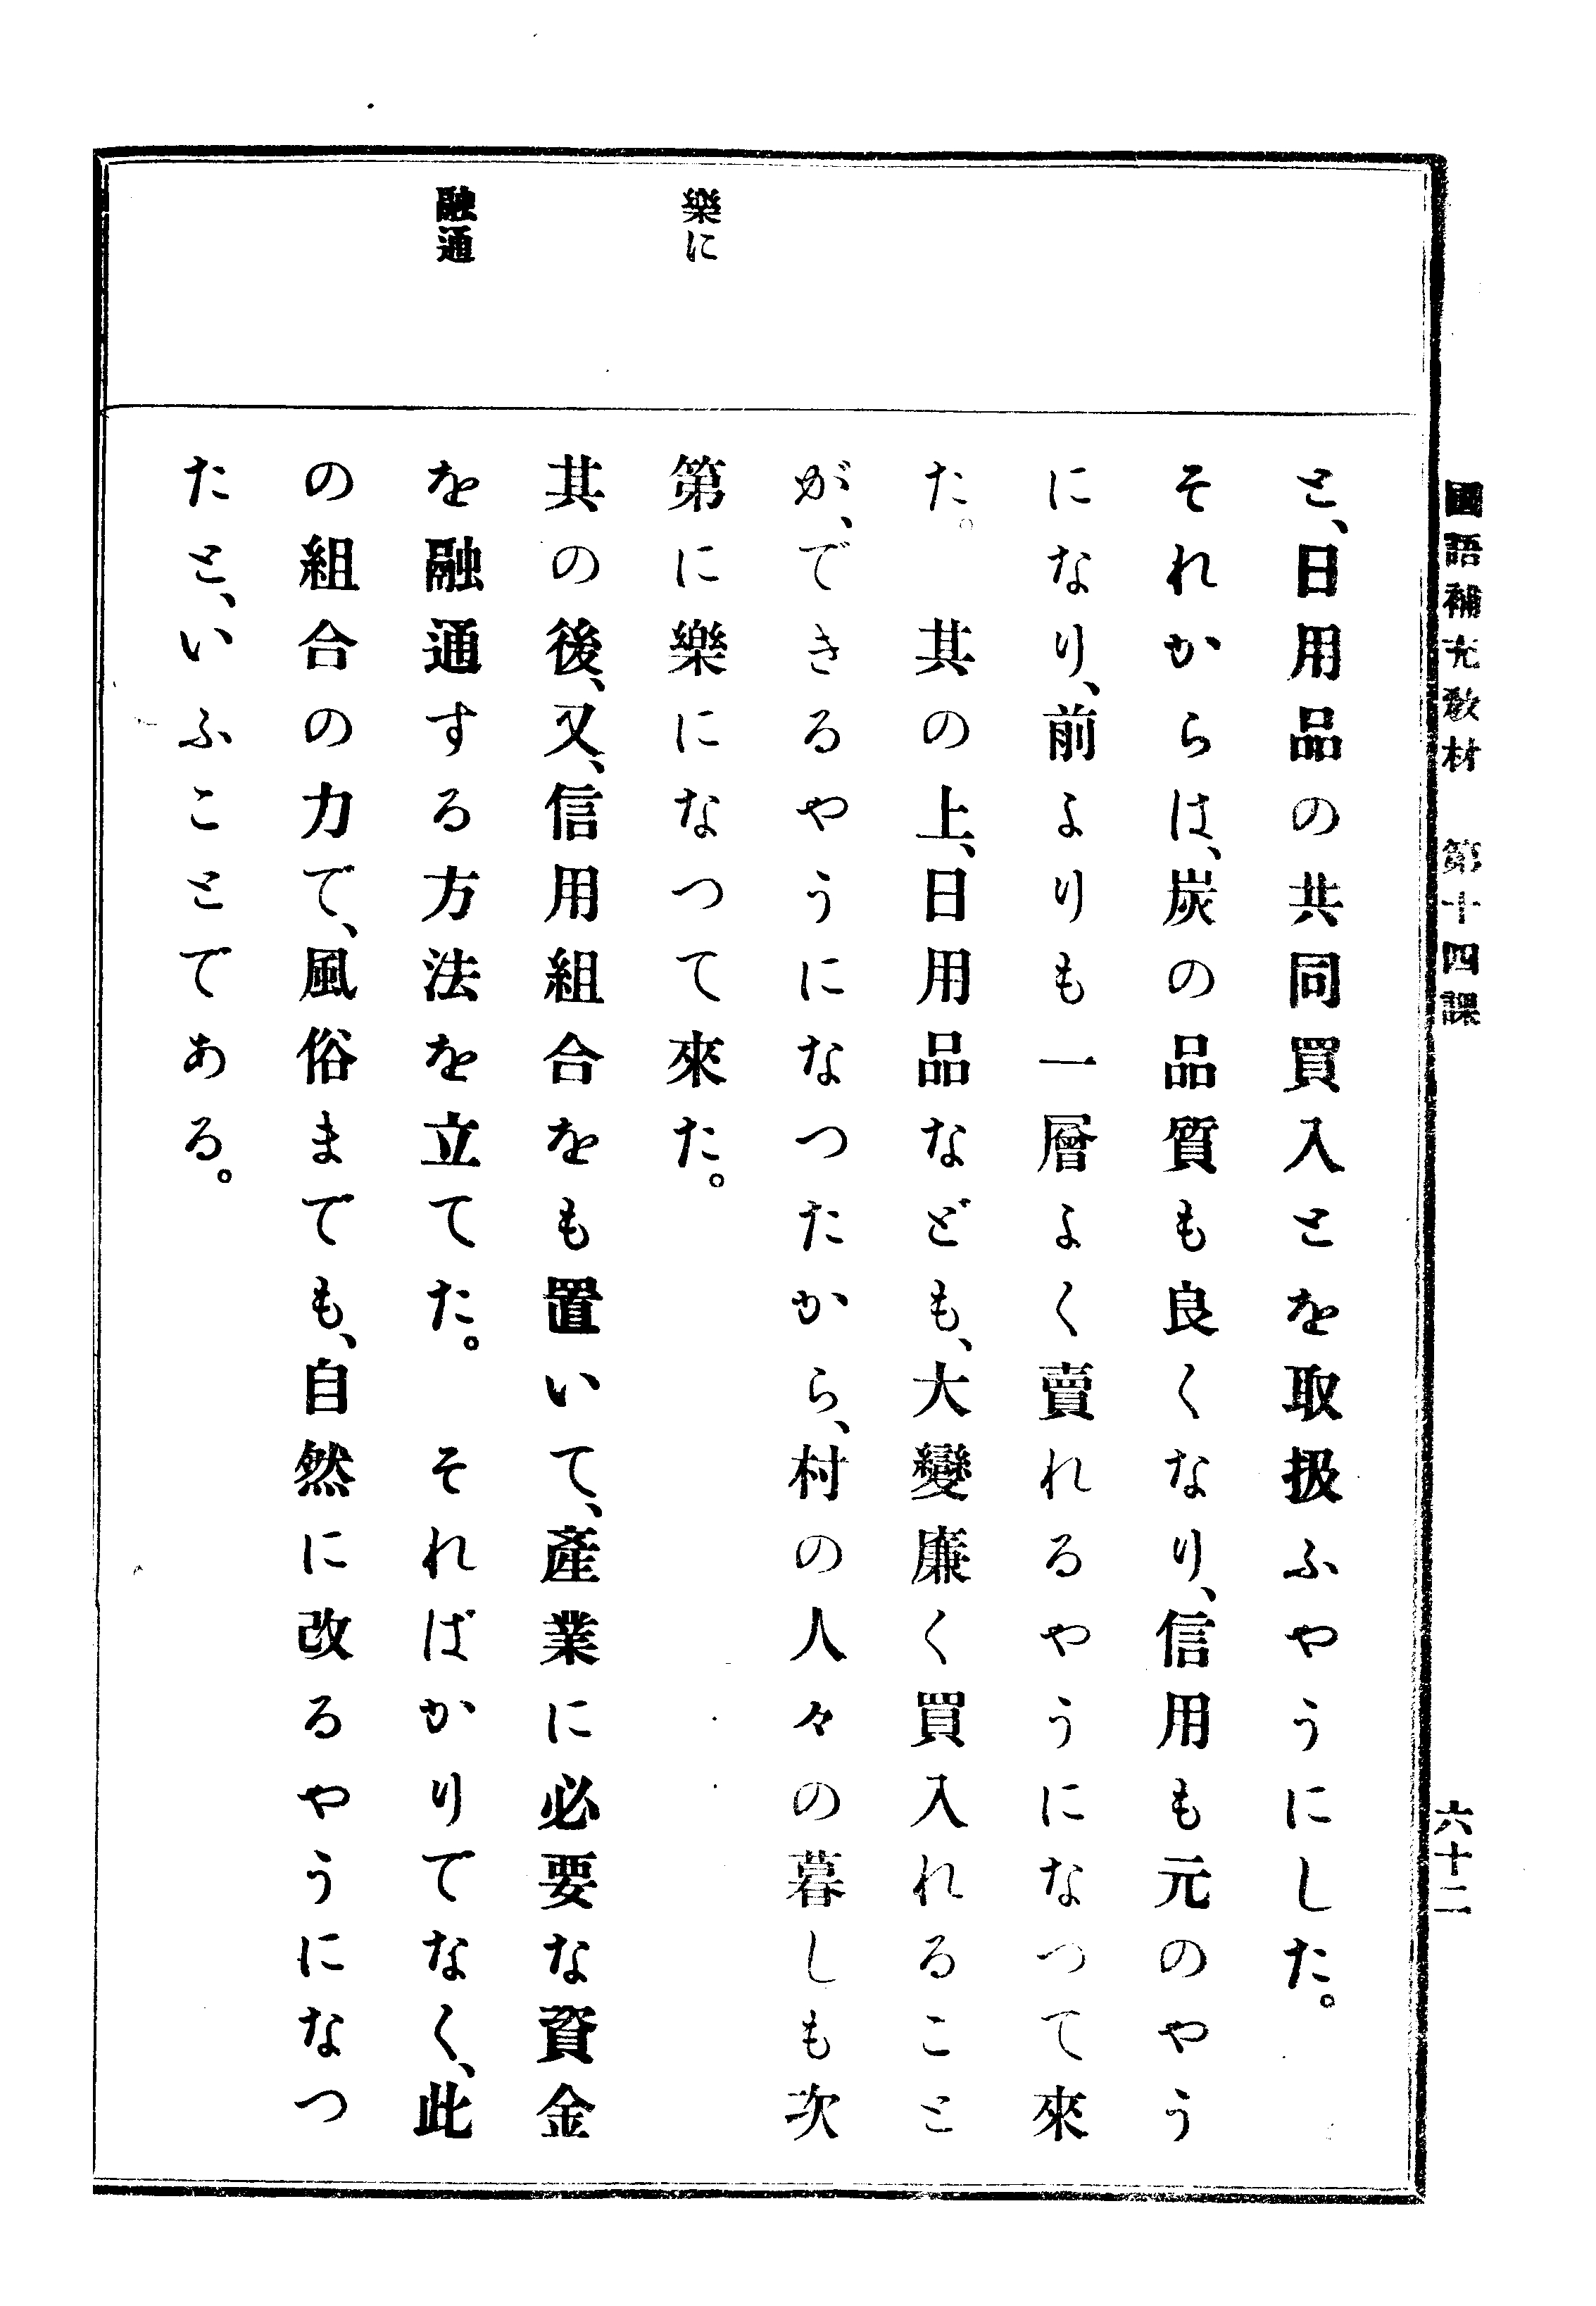 國語補充敎材　第十四課
六十二
樂に
融通
と、日用品の共同買入とを取扱ふやうにした。
それからは、炭の品質も良くなり、信用も元のやう
になり、前よりも一層よく賣れるやうになつて來
た。　其の上、日用品なども、大變廉く買入れること
が、できるやうになつたから、村の人々の暮しも次
第に樂になつて來た。
其の後、又、信用組合をも置いて、產業に必要な資金
を融通する方法を立てた。　そればかりでなく、此
の組合の力で、風俗までも、自然に改るやうになつ
たと、いふことである。